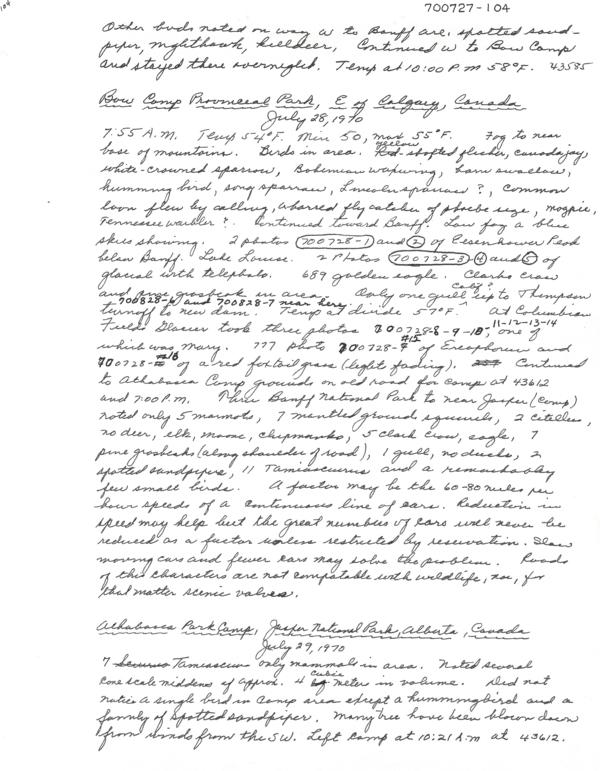 104
700727-104
Other birds noted on way w to Banff are, spotted sand-
piper, nighthawk, killdeer, Continued w to Bow Camp
and stayed there overnight. Temp at 10:00 P.M 58°F. 43585
Bow Camp Provincial Park, E of Calgary, Canada
July 28, 1970
7:55 A.M. Temp 54°F. Min 50, max 55°F. Fog to near
yellow
base of mountains. Birds in area. Red-shafted flicker, canada jay,
white-crowned sparrow, Bohemian waxwing, barn swallow,
hummingbird, song sparrow, Lincoln sparrow ?, common
loon flew by calling, a barred flycatcher of phoebe size, magpie,
Tennessee warbler ?. Continued toward Banff. Low fog a blue
skies showing. 2 photos 700728-1 and 2 of Eisenhower Peak
below Banff. Lake Louise. 2 Photos 700728-3 4 and 5 of
glacial with telephoto. 689 golden eagle. Clarks crow
Calif ?
and pine grosbeak in area. Only one gull up to Thompson
700828-6 and 700728-7 near here
turnoff to new dam. Temp at divide 57°F. At Columbian
11-12-13-14
Fields Glacier took three photos 700728-8-9-10, one of
#15
which was Mary. 777 photo 700728- of and
#16
700728- of a red foxtail grass (light fading). Continued
to Athabasca Camp grounds on old road for camp at 43612
and 7:00 P.M. Thru Banff National Park to near Jasper (Camp)
noted only 5 marmots, 7 mantled ground squirrels, 2 citellus,
no deer, elk, moose, chipmunks, 5 clark crow, eagle, 7
pine grosbeaks (along shoulder of road), 1 gull, no ducks, 2
spotted sandpipers, 11 Tamiasciurus and a remarkably
few small birds. A factor may be the 60-80 miles per
hour speeds of a continuous line of cars. Reduction in
speed may help but the great numbers of cars will never be
reduced as a factor unless restricted by reservation. Slow
moving cars and fewer cars may solve the problem. Roads
of this characters are not compatable with wildlife, nor, for
that matter scenic values.
Athabasca Park Camp, Jasper National Park, Alberta, Canada
July 29, 1970
7 Sciurus Tamiasciurus only mammals in area. Noted several
cubic
cone scale middens of approx. 4 meter in volume. Did not
notice a single bird in camp area except a hummingbird and a
family of spotted sandpiper. Many tree have been blown down
from winds from the SW. Left camp at 10:21 A.M at 43612.